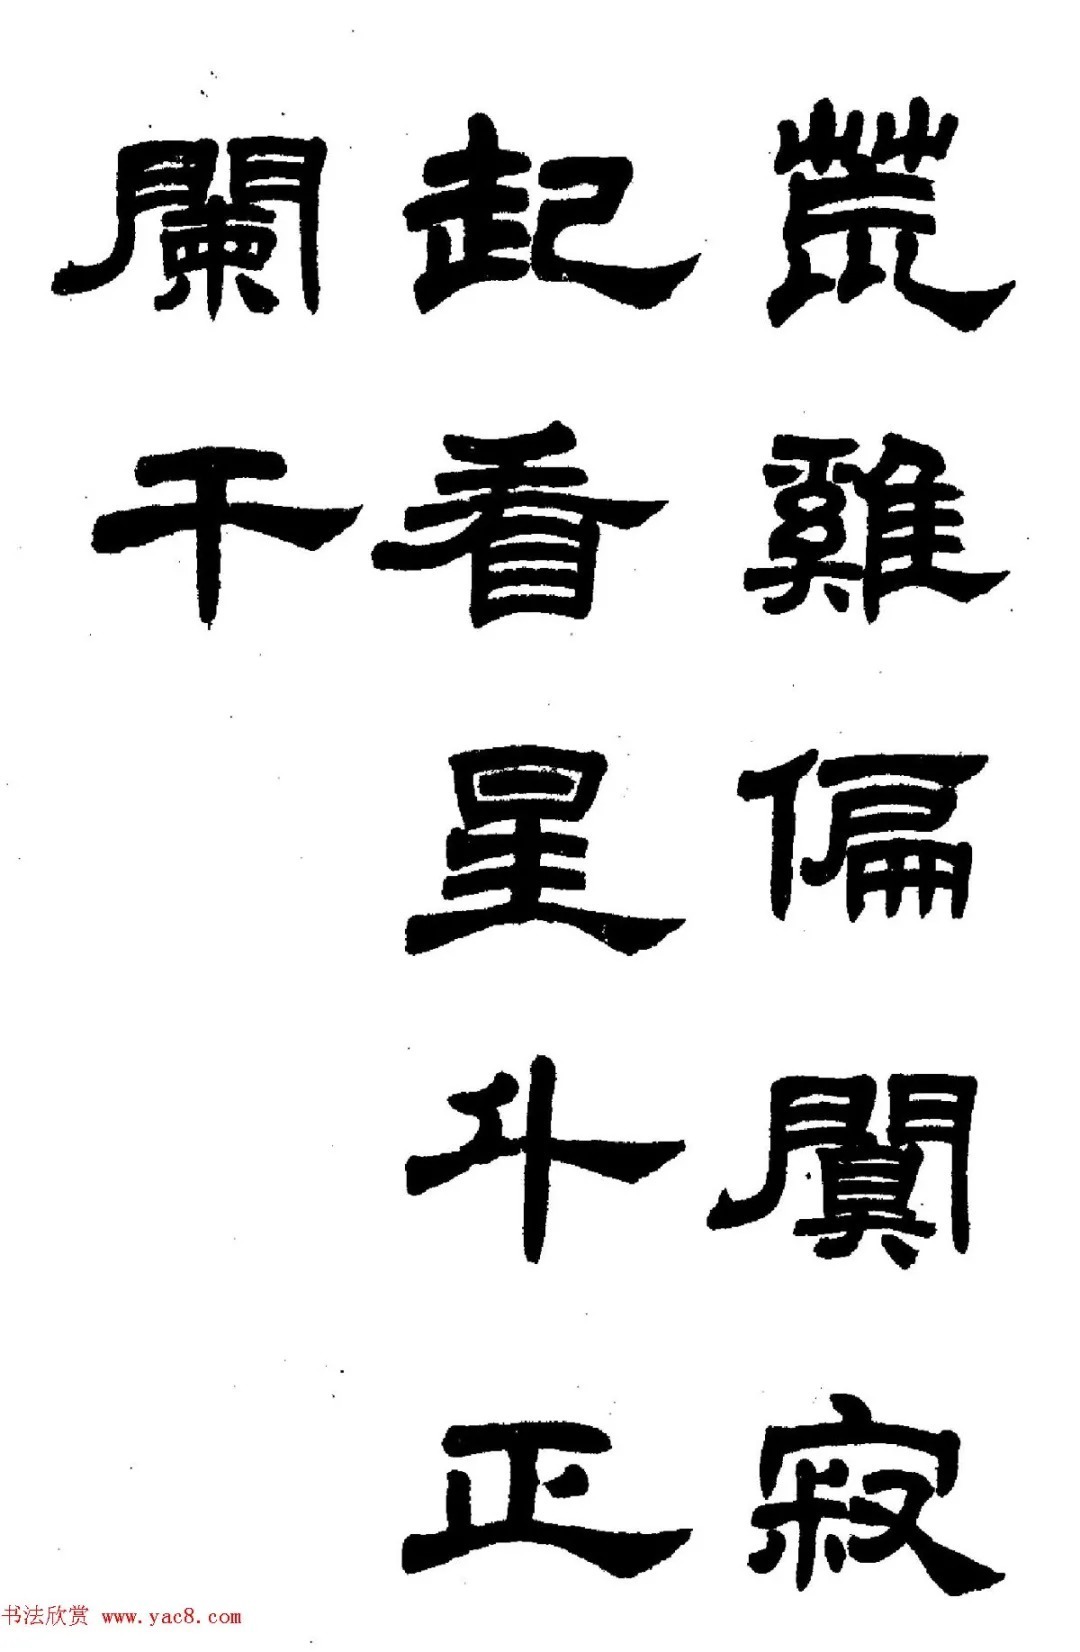 荒雞偏闃寂
起看星斗正
闌干
书法欣赏 www.yac8.com